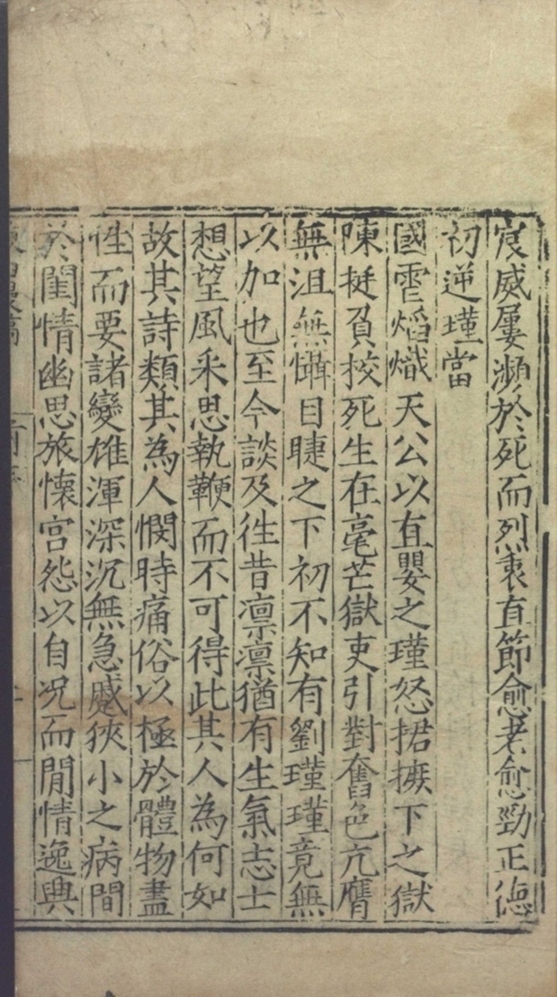 宸威屢瀕於死而烈衷直節愈老愈勁正德
初逆瑾當
國雪熖熾天公以直嬰之瑾怒捃摭下之獄
陳挺貟挍死生在毫芒獄吏引對奮色亢膺
無沮無懾目睫之下初不知有劉瑾瑾竟無
以加也至今談及徃昔凛凛猶有生氣志士
想望風釆思執鞭而不可得此其人為何如
故其詩類其為人憫時痛俗以極於體物盡
性而要諸變雄渾深沉無急蹙狹小之病間
於閨情幽思旅懷宫怨以自况而閒情逸興